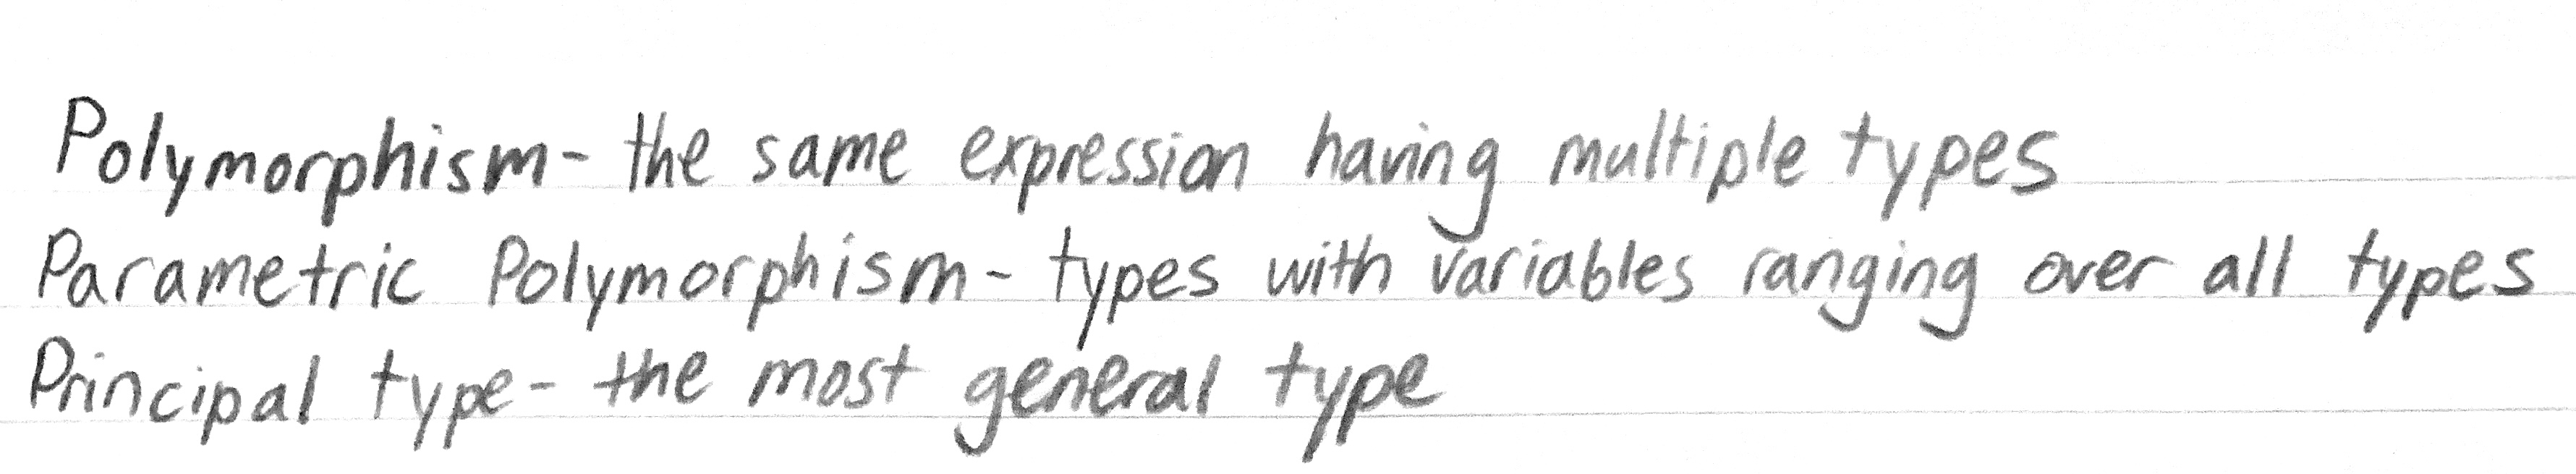 Polymorphism - the same expression having multiple types
Parametric Polymorphism - types with variables ranging over all types
Principal type - the most general type